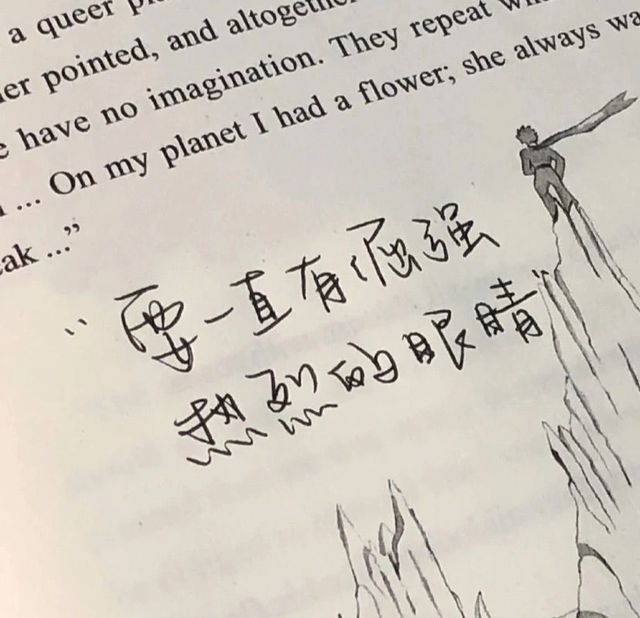 a queer
pointed, and altogether
have no imagination. They repeat
... On my planet I had a flower; she always
..."
"要一直有倔强
热烈的眼睛"